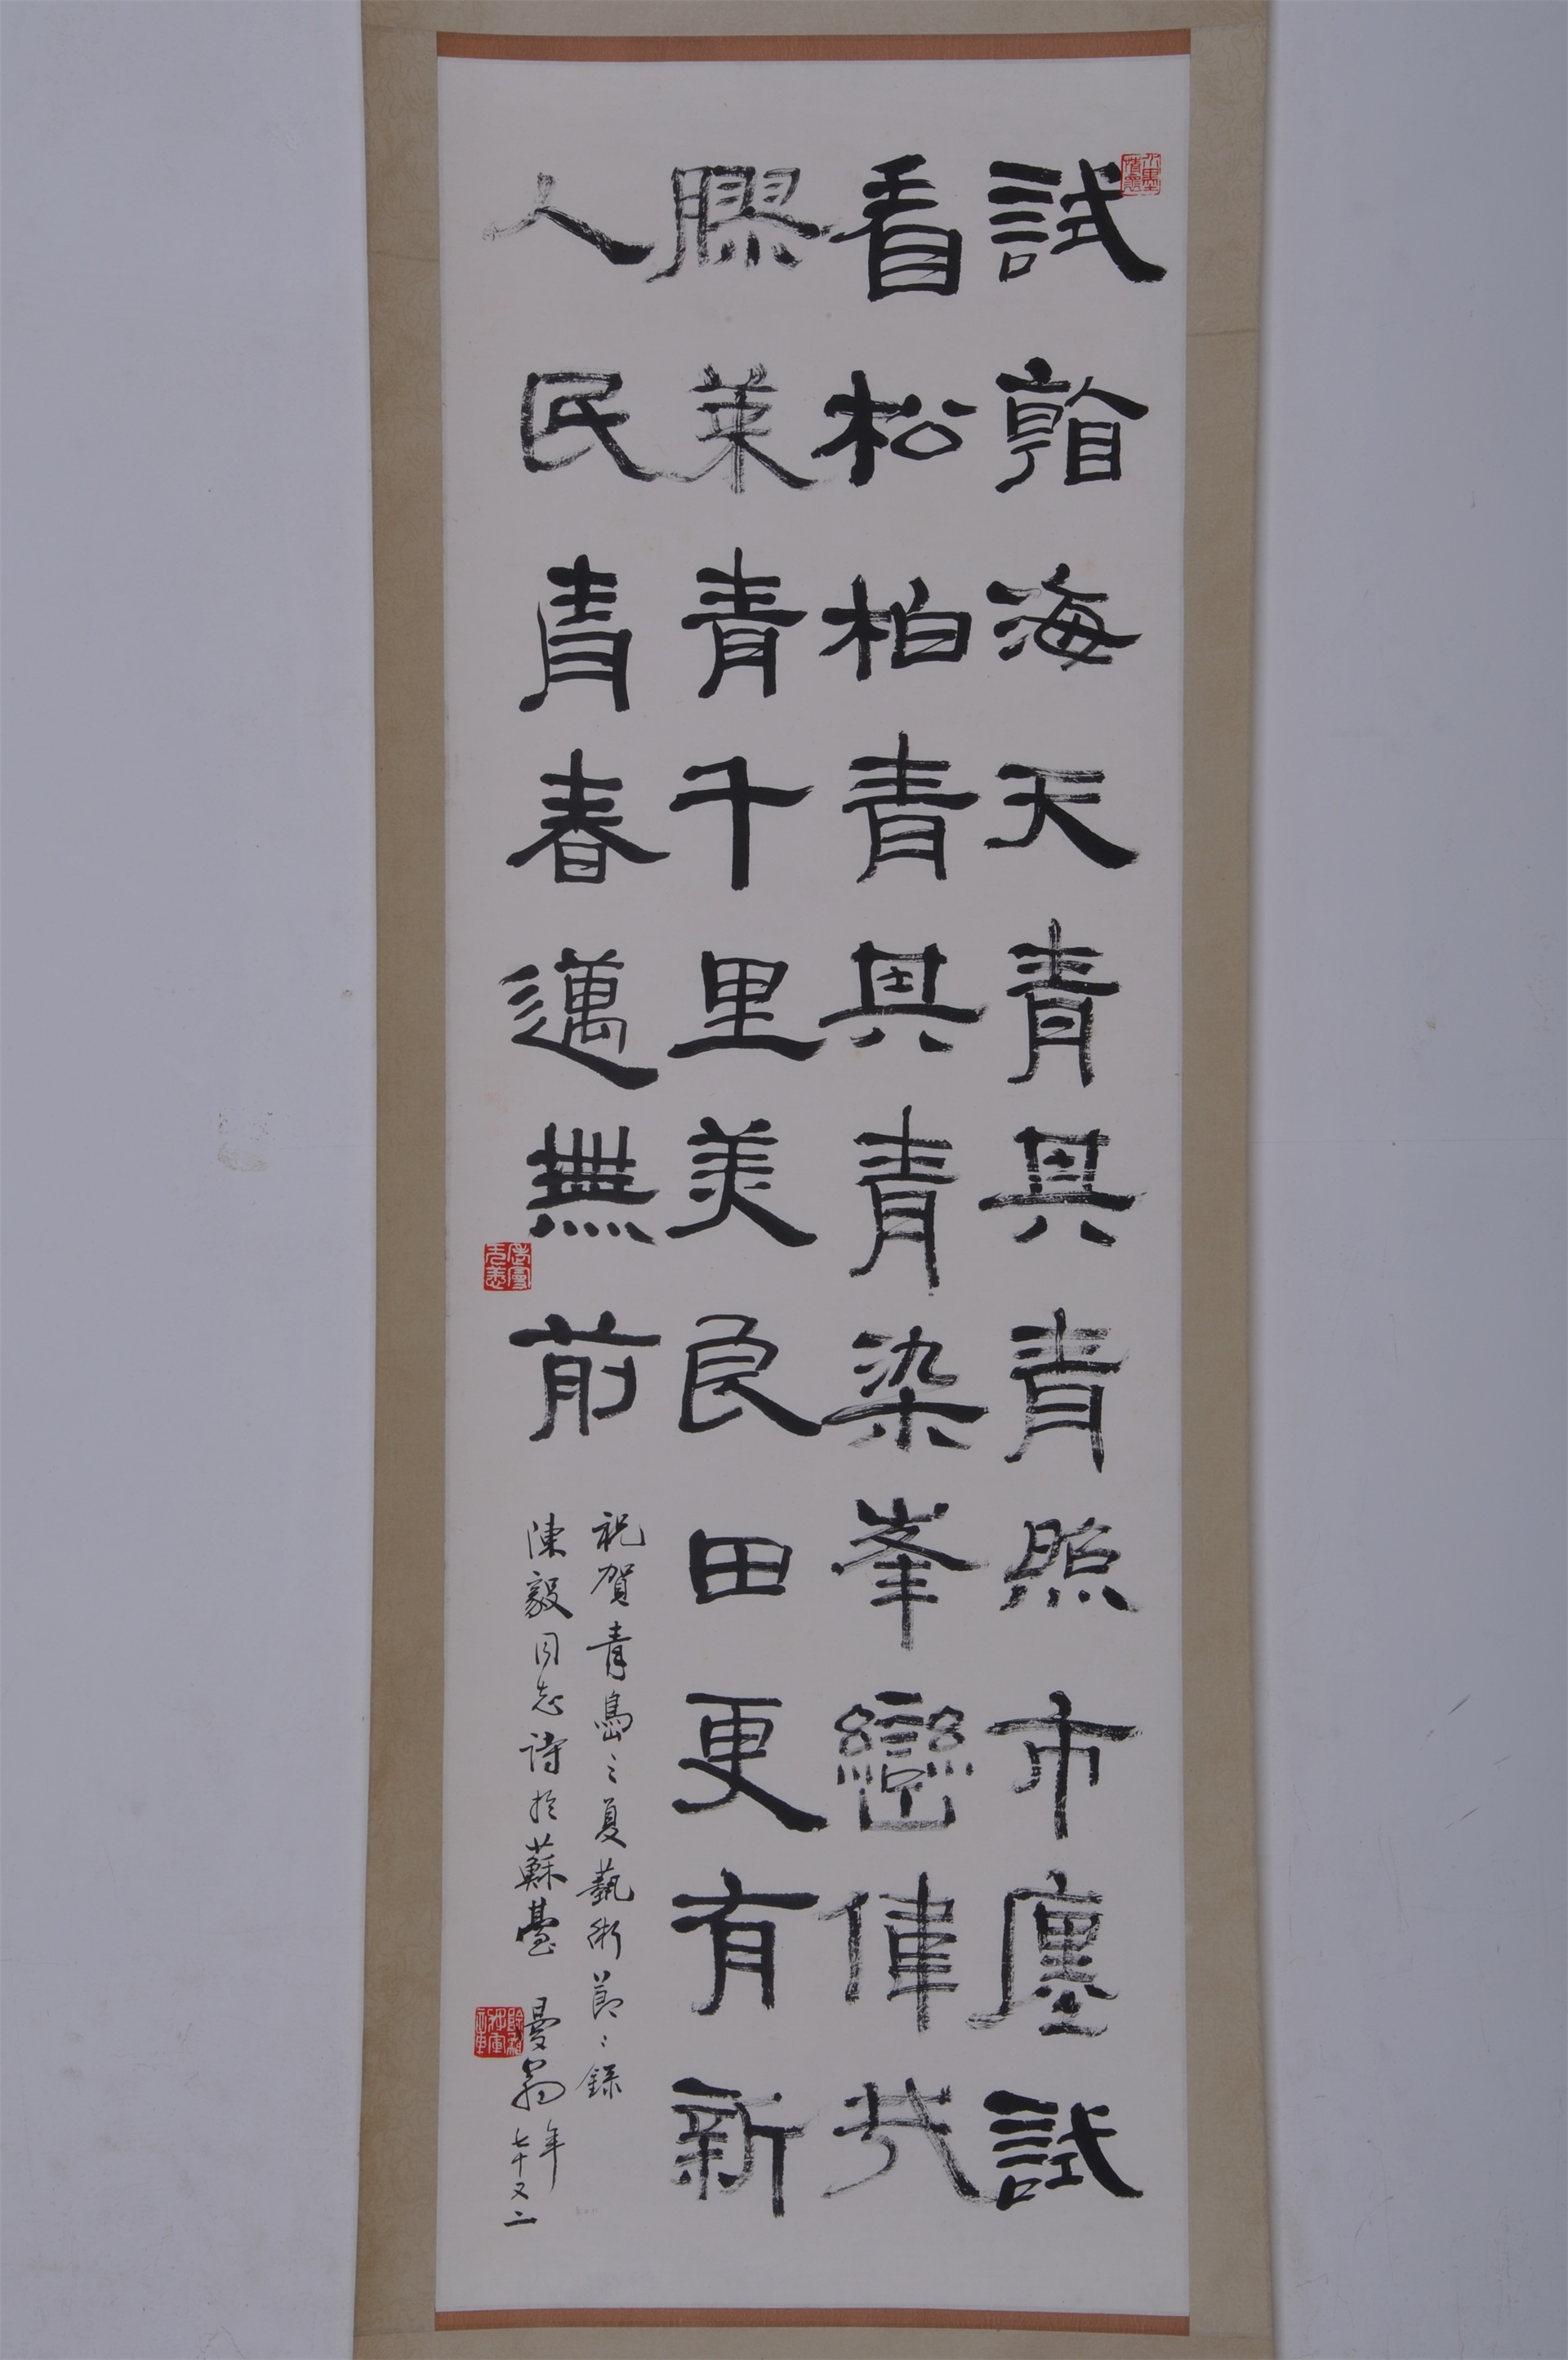 試看海天青其青照市廛試
看松柏青其青染峯巒偉哉
膠萊青千里美良田更有新
人民青春邁無前
祝賀青島之夏藝術節節録
陳毅同志詩於蘇臺 曼翁年七十又二